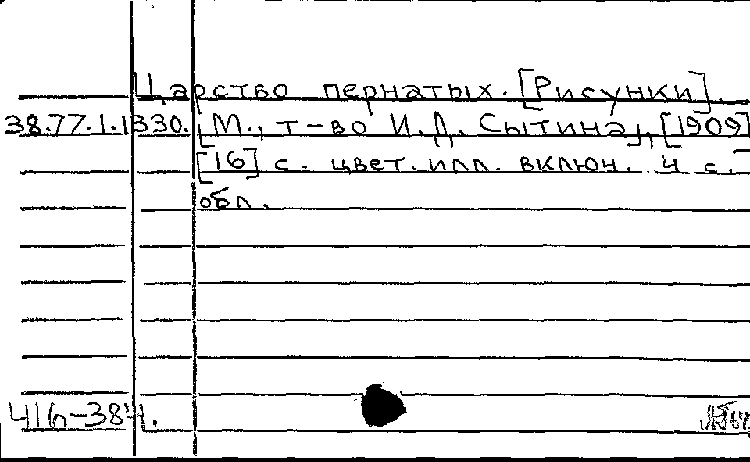 Царство пернатых. [Рисунки].
38.77.1.1330. [М., т-во И.Д. Сытина], [1909]
[16] с. цвет. илл. включ. 4 с.
обл.